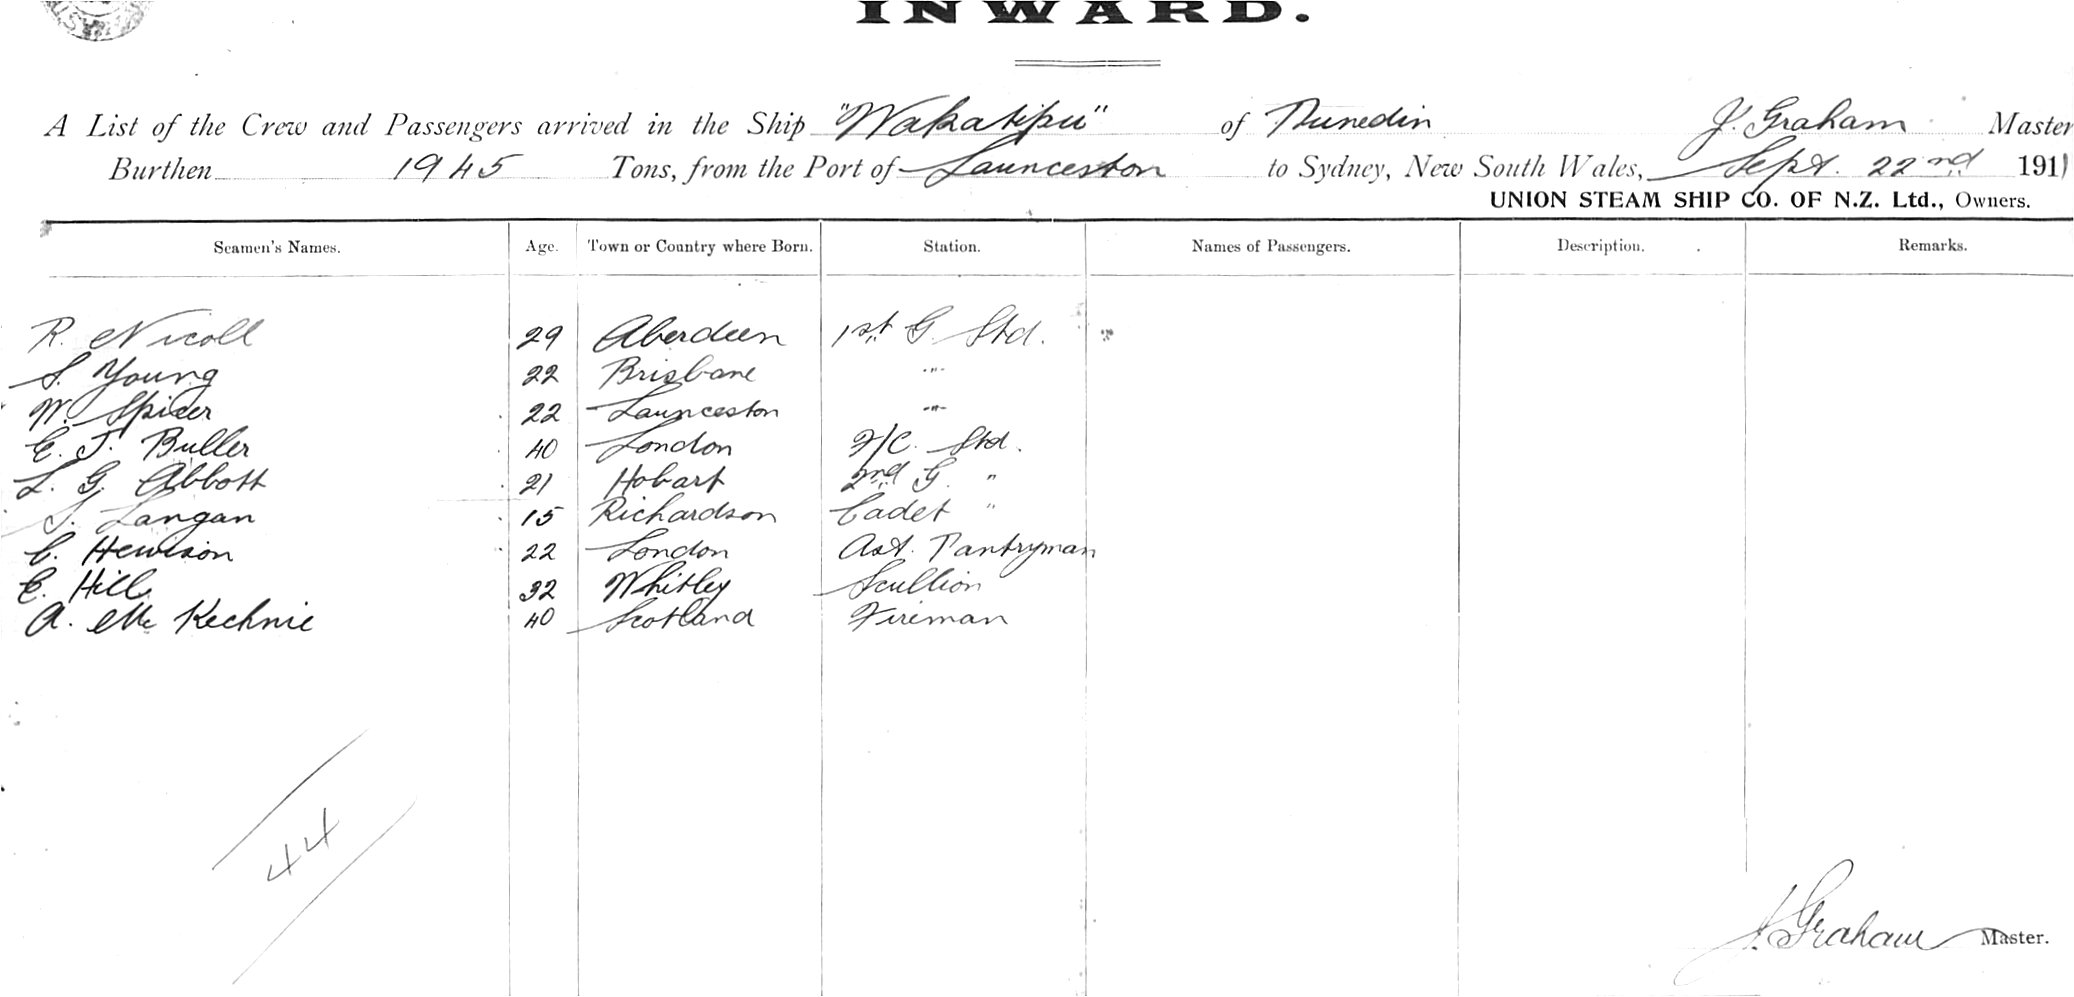 INWARD.
A List of the Crew and Passengers arrived in the Ship "Wakatipu" of Dunedin J. Graham Master
Burthen 1945 Tons, from the Port of Launceston to Sydney, New South Wales, Sept. 22nd 1911
UNION STEAM SHIP CO. OF N.Z. Ltd., Owners.
Seamen's Names. Age. Town or Country where Born. Station. Names of Passengers. Description. Remarks.
R. Nicoll 29 Aberdeen 1st G Std.
S. Young 22 Brisbane -"-
W. Spicer 22 Launceston -"-
E. J. Buller 40 London F/C. Std.
L. G. Abbott 21 Hobart 2nd G. "
J. Langan 15 Richardson Cadet "
C. Hewison 22 London Ast. Pantryman
E. Hill 32 Whitley Scullion
A. Mc Kechnie 40 Scotland Fireman
44
J. Graham Master.